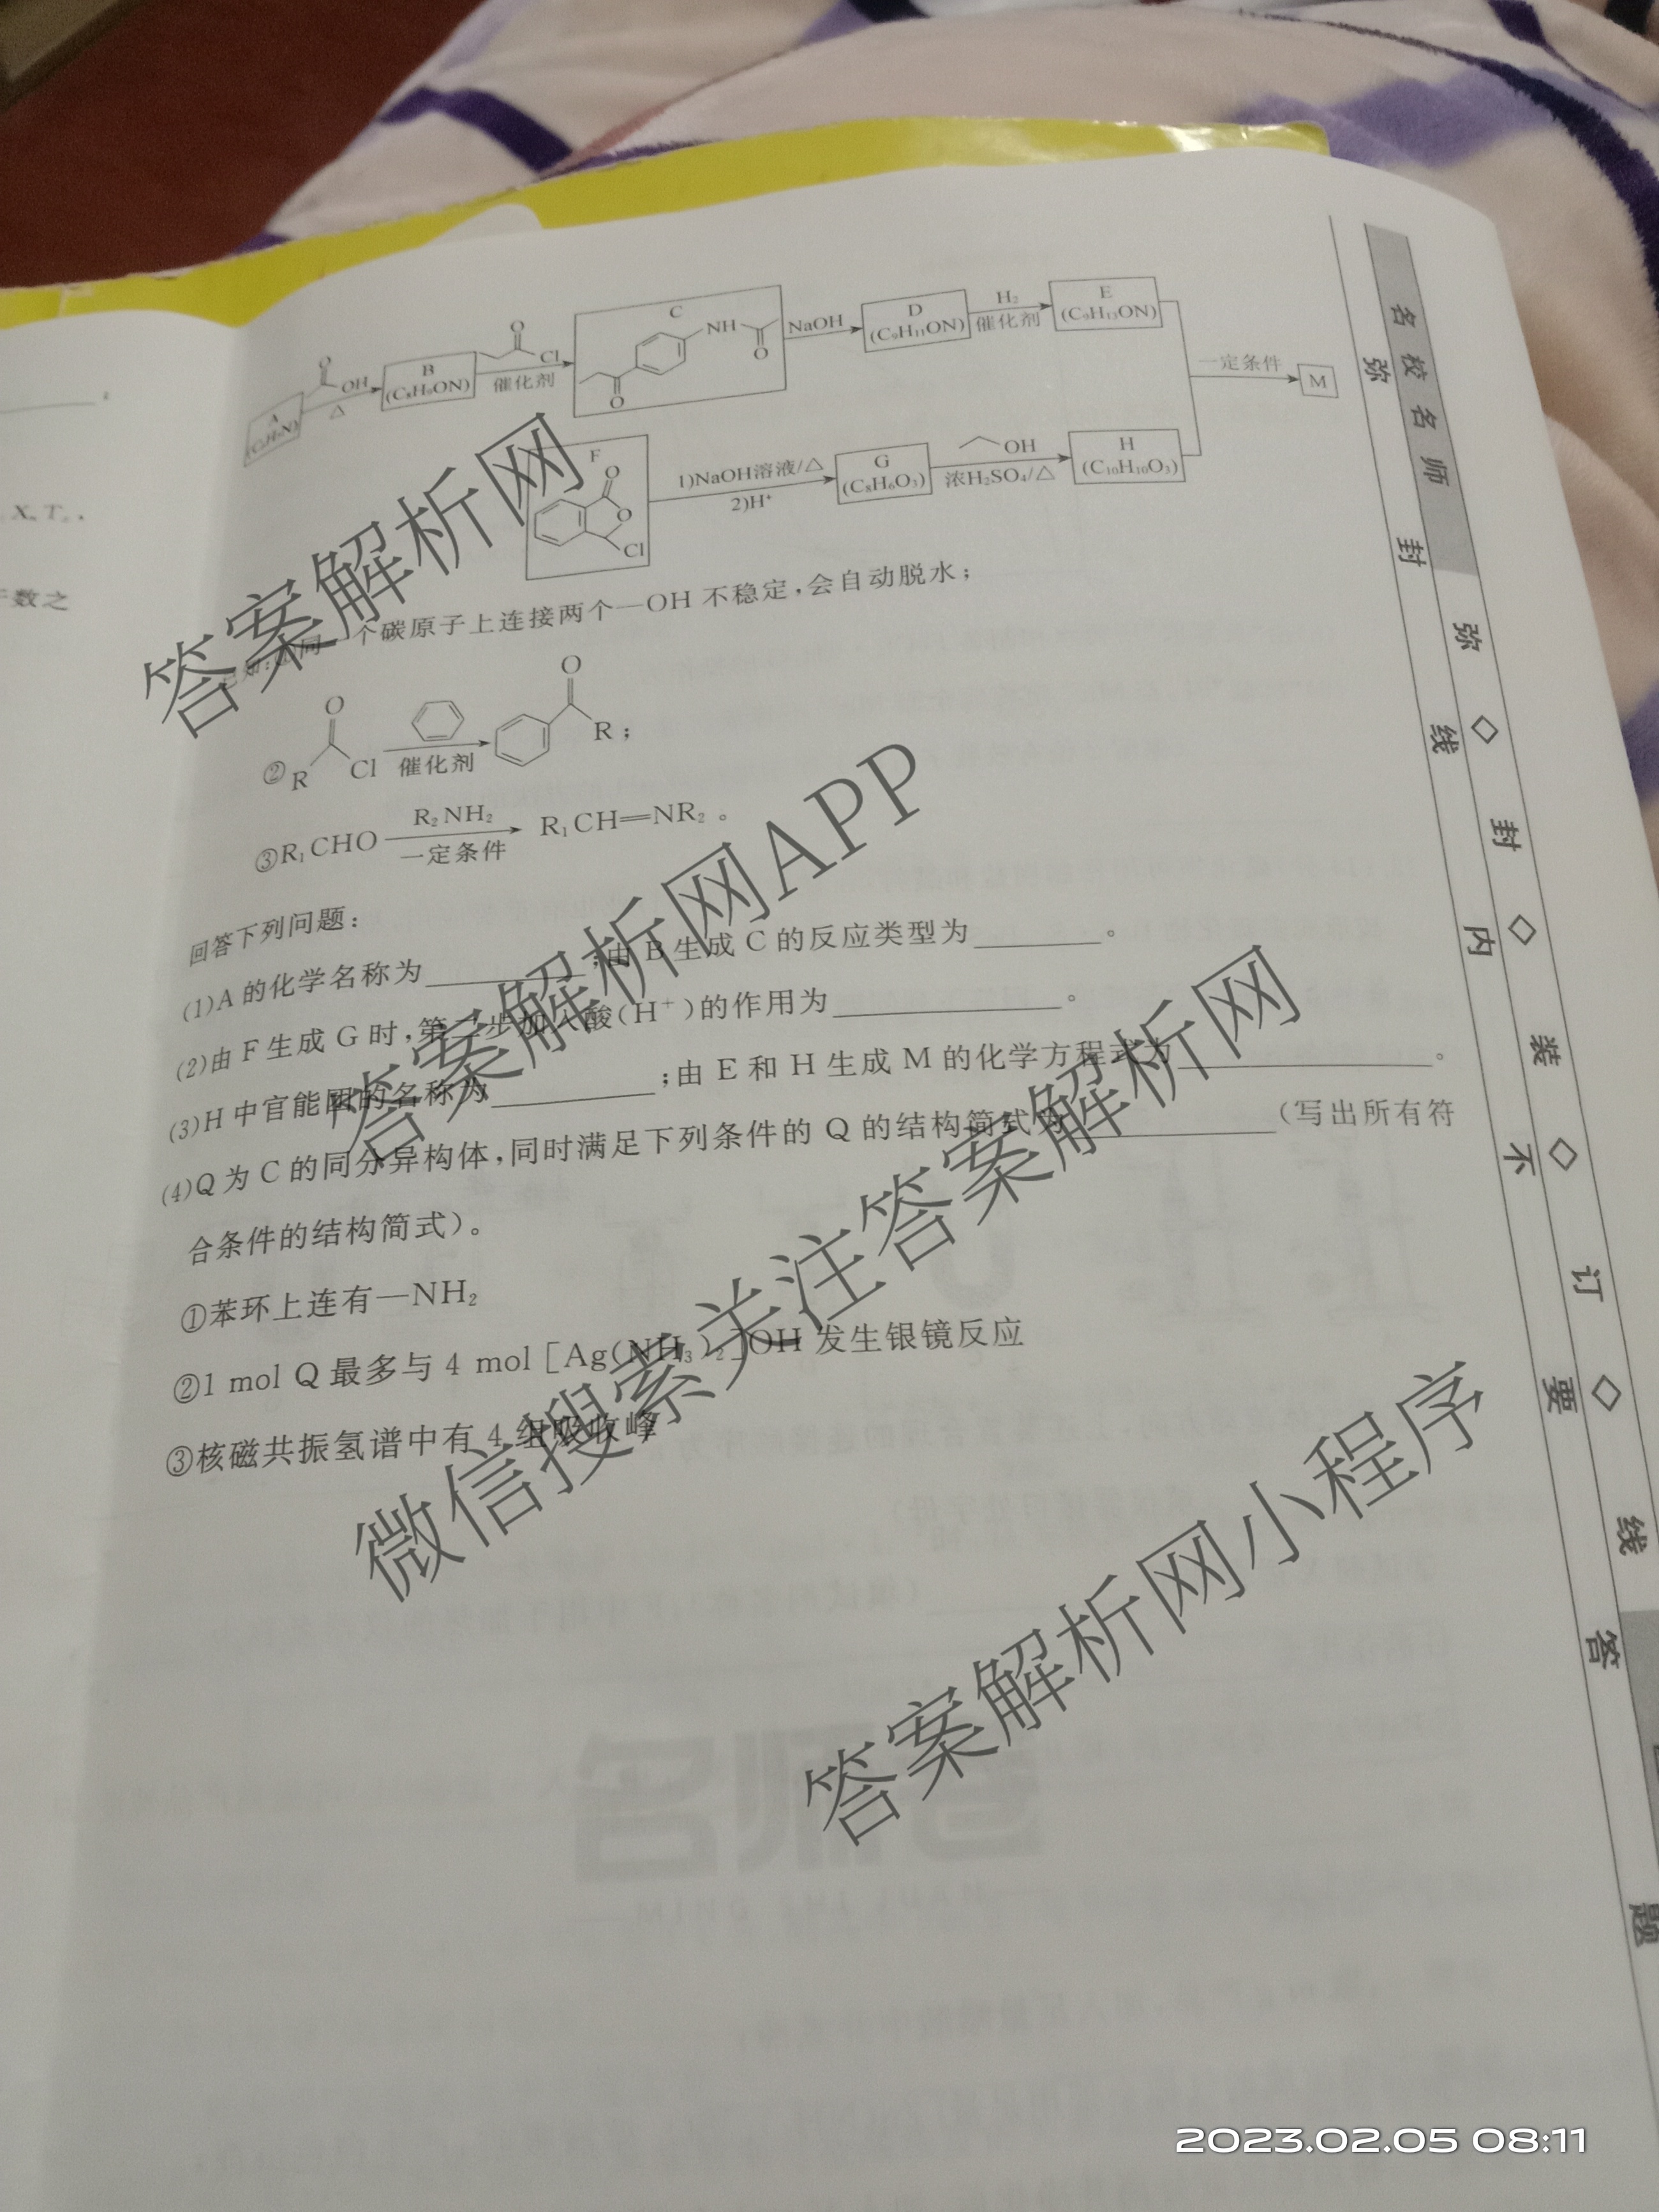 X。T。,
数之
A
OH
△
B
(C₈H₉ON)
O
Cl
催化剂
C
NH
O
O
NaOH
D
(C₉H₁₁ON)
H₂
催化剂
E
(C₉H₁₃ON)
一定条件
M
F
O
O
Cl
1)NaOH溶液/△
2)H⁺
G
(C₈H₆O₃)
OH
浓H₂SO₄/△
H
(C₁₀H₁₀O₃)
个碳原子上连接两个—OH 不稳定,会自动脱水;
② R O Cl 催化剂 O R ;
③R₁CHO R₂NH₂ 一定条件 R₁CH=NR₂。
回答下列问题:
(1)A 的化学名称为________;由 B 生成 C 的反应类型为________。
(2)由 F 生成 G 时,第二步加入酸(H⁺)的作用为________。
(3)H 中官能团的名称为________;由 E 和 H 生成 M 的化学方程式为________。
(4)Q 为 C 的同分异构体,同时满足下列条件的 Q 的结构简式为________(写出所有符
合条件的结构简式)。
①苯环上连有—NH₂
②1 mol Q 最多与 4 mol [Ag(NH₃)₂]OH 发生银镜反应
③核磁共振氢谱中有 4 组吸收峰
名校名师
弥 ◇ 封 ◇ 装 ◇ 订 ◇ 线
弥 封 线 内 不 要 答 题
答案解析网
答案解析网APP
微信搜索关注答案解析网
答案解析网小程序
2023.02.05 08:11